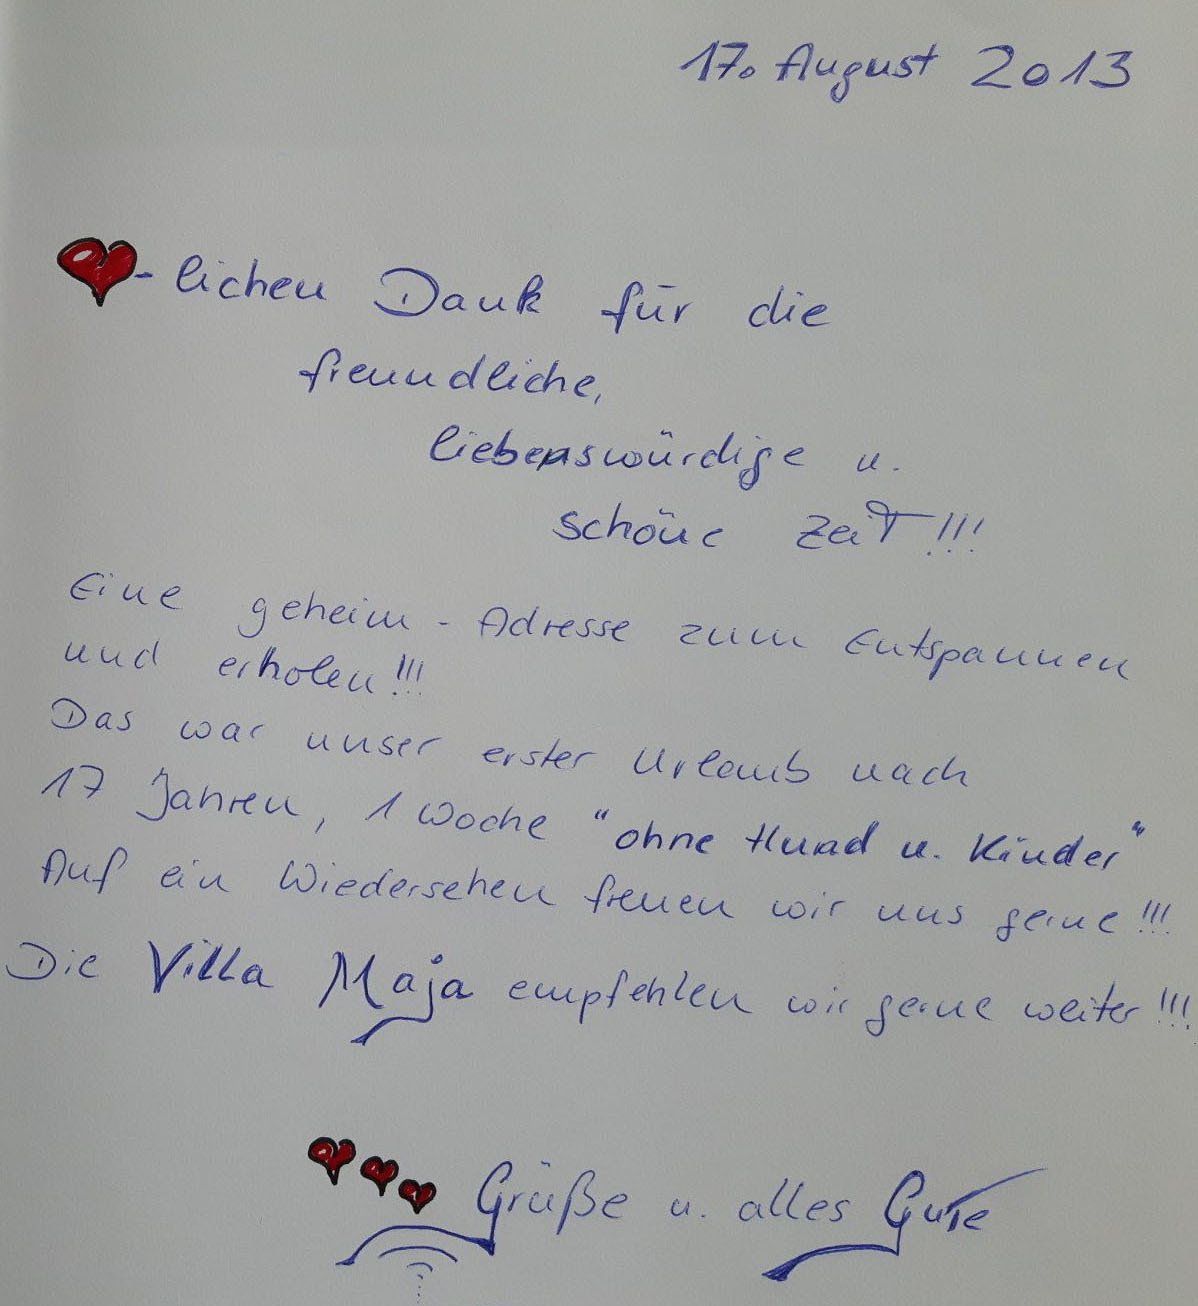 17. August 2013
-lichen Dank für die
freundliche,
liebenswürdige u.
schöne Zeit!!!
Eine geheim-Adresse zum Entspannen
und erholen!!!
Das war unser erster Urlaub nach
17 Jahren, 1 Woche "ohne Hund u. Kinder"
Auf ein Wiedersehen freuen wir uns gerne!!!
Die Villa Maja empfehlen wir gerne weiter!!!
Grüße u. alles Gute